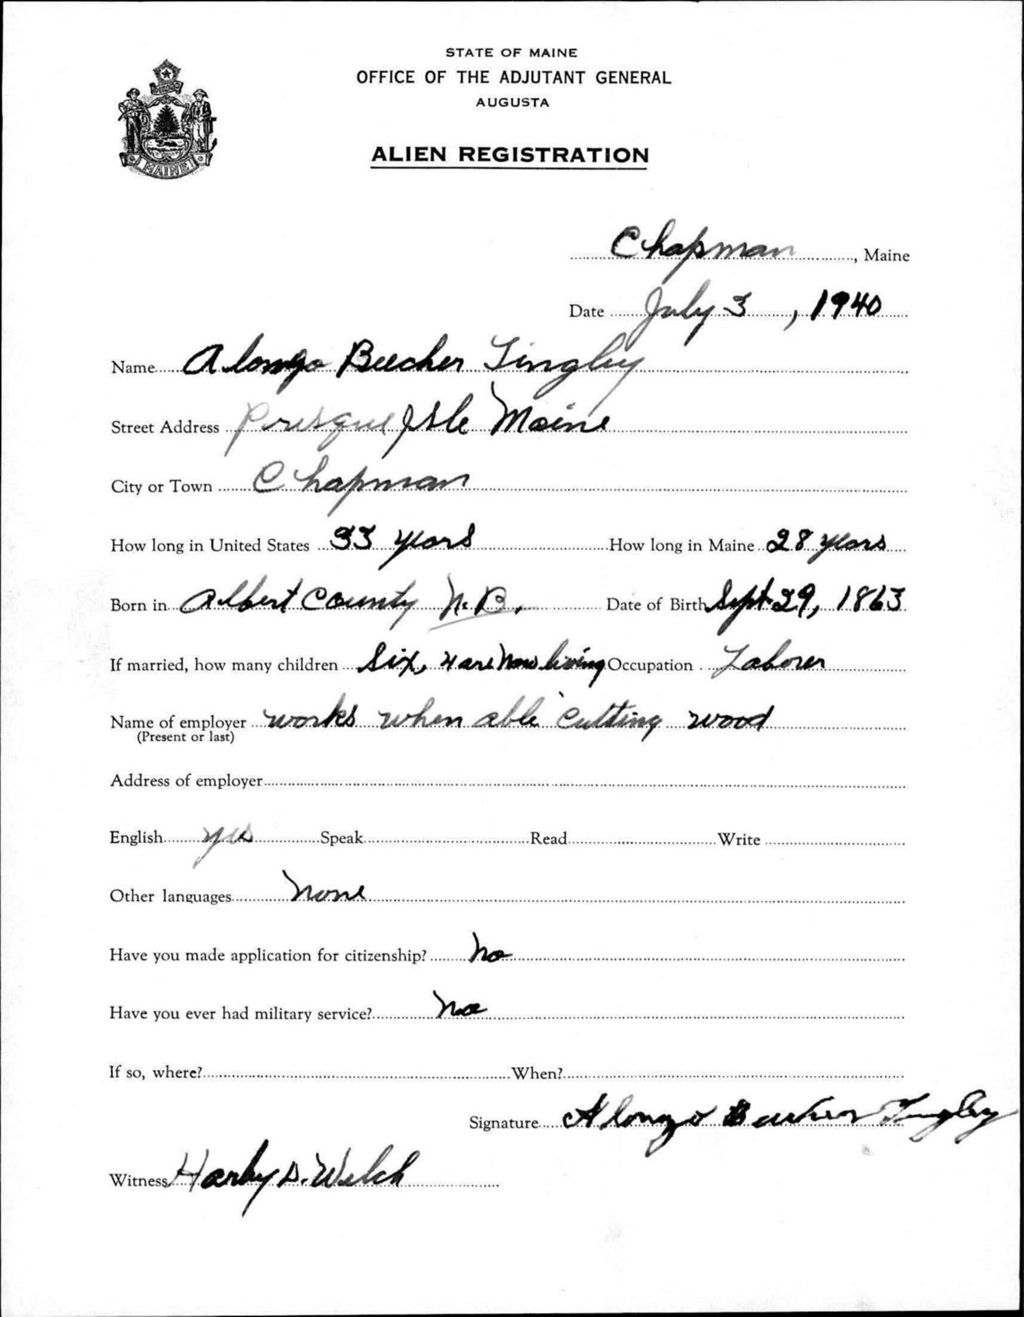 STATE OF MAINE
OFFICE OF THE ADJUTANT GENERAL
AUGUSTA
ALIEN REGISTRATION
MAINE
Chapman, Maine
Date July 3, 1940
Name Alonzo Beecher Tingley
Street Address Presque Isle Maine
City or Town Chapman
How long in United States 33 years How long in Maine 28 years
Born in Albert County N.B. Date of Birth Sept 29, 1863
If married, how many children Six, 4 are now living Occupation Laborer
Name of employer works when able cutting wood
(Present or last)
Address of employer
English yes Speak Read Write
Other languages none
Have you made application for citizenship? No
Have you ever had military service? No
If so, where? When?
Signature Alonzo Beecher Tingley
Witness Harry D. Welch